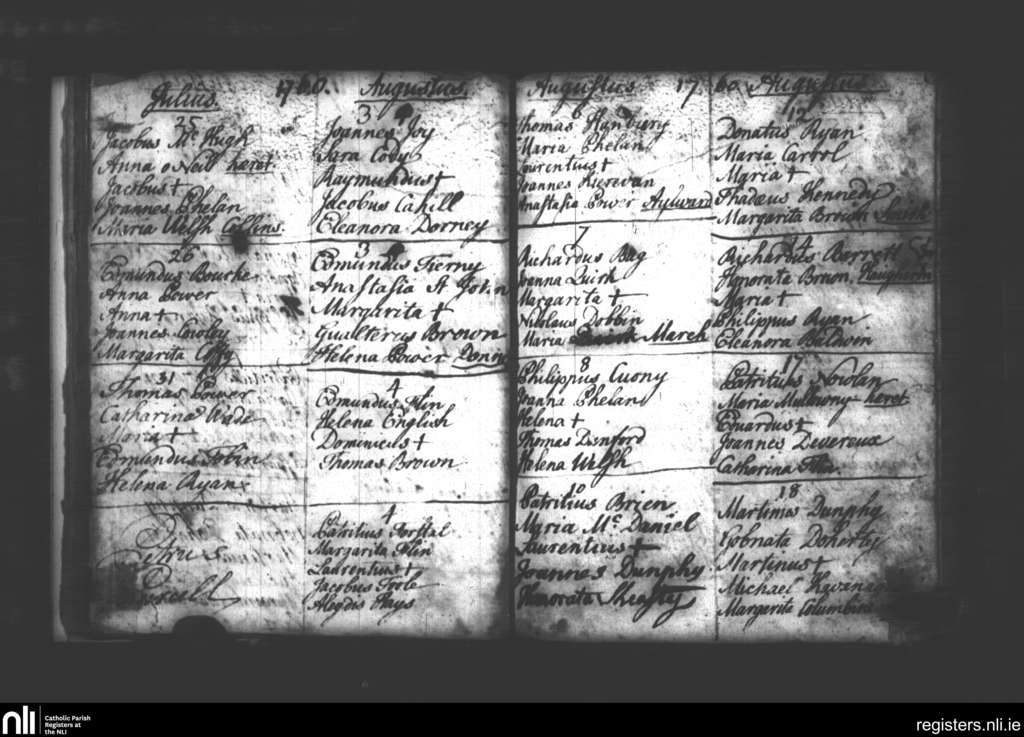 Julius.
25
Jacobus Mc Hugh
Anna oNeil hæret
Jacobus †
Joannes Phelan
Maria Welsh Collins.
26
Edmundus Bourke
Anna Power
Anna †
Joannes Cowley
Margarita
31
Thomas Power
Catharina Wade
Maria †
Edmundus Tobin
Helena Ryan
Petrus
Purcell
1760. Augustus.
3
Joannes Joy
Sara Cody
Raymundus †
Jacobus Cahill
Eleanora Dorney
3
Edmundus Tierny
Anastasia St John
Margarita †
Gualterus Brown
Helena Power
4
Edmundus Flin
Helena English
Dominicus †
Thomas Brown
4
Patritius Forstal
Margarita Flin
Laurentius †
Jacobus Toole
Hays
Augustus 17
6
Thomas Hanbury
Maria Phelan
Laurentius †
Joannes Kierevan
Anastasia Power Ayluard
7
Richardus Bag
Joanna Quirk
Margarita †
Nicolaus Dobbin
Maria March
8
Philippus Cuony
Joanna Phelan
Helena †
Thomas Danford
Helena Welsh
10
Patritius Brien
Maria Mc Daniel
Laurentius †
Joannes Dunphy
Honorata
60 Augustus.
12
Donatus Ryan
Maria Carrol
Maria †
Thadæus Kennedy
Margarita Brown
14
Richardus Barrett
Honorata Brown.
Maria †
Philippus Ryan
Eleanora Baldwin
17
Patritius Nowlan
Maria Mullowny hæret
Eduardus †
Joannes Devereux
Catharina
18
Martinus Dunphy
Gobnata Doherty
Martinus †
Michael Kavanagh
Margarita Columbine
nli Catholic Parish
Registers at
the NLI
registers.nli.ie